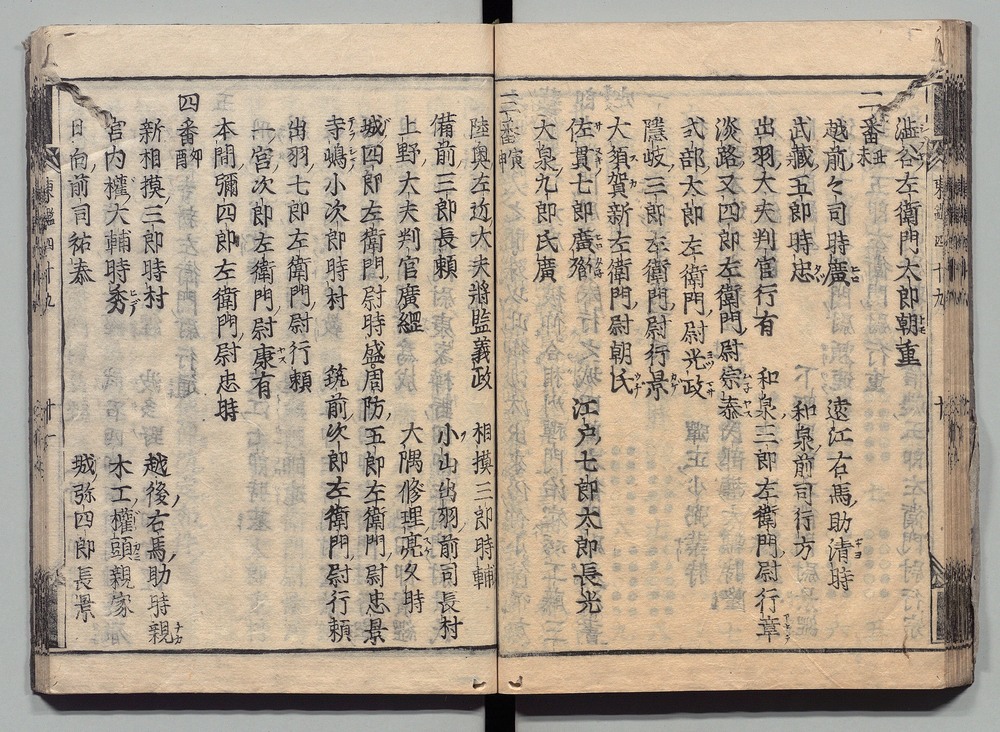 澁谷左衛門太郎朝重
二番 丑未
越前々司時廣 遠江右馬助清時
武藏五郎時忠 和泉前司行方
出羽大夫判官行有 和泉三郎左衛門尉行章
淡路又四郎左衛門尉宗泰
式部太郎左衛門尉光政
隱岐三郎左衛門尉行景
大須賀新左衛門尉朝氏
佐貫七郎廣 江戸七郎太郎長光
大泉九郎氏廣
三番 寅申
陸奥左近大夫將監義政 相摸三郎時輔
備前三郎長頼 小山出羽前司長村
上野大夫判官廣綱 大隅修理亮久時
城四郎左衛門尉時盛 周防五郎左衛門尉忠景
寺嶋小次郎時村 筑前次郎左衛門尉行頼
出羽七郎左衛門尉行頼
一宮次郎左衛門尉康有
本間彌四郎左衛門尉忠時
四番 卯酉
新相摸三郎時村 越後右馬助時親
宮内權大輔時秀 木工權頭親家
日向前司祐泰 城弥四郎長景
東鑑四十九 十